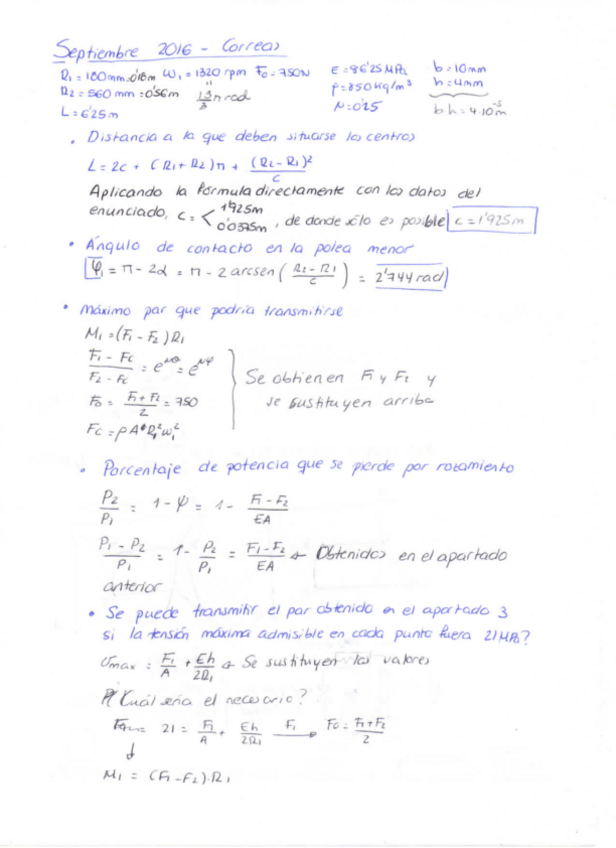 Septiembre 2016 - Correas
R₁ = 180mm = 0'18m ω₁ = 1320 rpm F₀ = 750N E = 86'25 MPa b = 10mm
R₂ = 560 mm = 0'56m ρ = 850kg/m³ h = 4mm
L = 6'25m μ = 0'25 bh = 4·10⁻⁵m
• Distancia a la que deben situarse los centros
L = 2c + (R₁+R₂)π + (R₂-R₁)²/c
Aplicando la fórmula directamente con los datos del
enunciado, c = < 1'925m 0'0375m , de donde sólo es posible c = 1'925m
• Ángulo de contacto en la polea menor
φ₁ = π - 2α = π - 2 arcsen (R₂-R₁/c) = 2'744 rad
• Máximo par que podría transmitirse
M₁ = (F₁ - F₂)R₁
F₁ - Fc / F₂ - Fc = e^μθ = e^μφ
Se obtienen F₁ y F₂ y
F₀ = F₁+F₂/2 = 750
se sustituyen arriba
Fc = ρAR₁²ω₁²
• Porcentaje de potencia que se pierde por rozamiento
P₂/P₁ = 1 - ψ = 1 - F₁-F₂/EA
P₁-P₂/P₁ = 1 - P₂/P₁ = F₁-F₂/EA ← Obtenidos en el apartado
anterior
• Se puede transmitir el par obtenido en el apartado 3
si la tensión máxima admisible en cada punto fuera 21MPa?
σmax = F₁/A + Eh/2R₁ ← Se sustituyen los valores
Cuál sería el necesario?
21 = F₁/A + Eh/2R₁ F₁ → F₀ = F₁+F₂/2
↓
M₁ = (F₁-F₂)·R₁